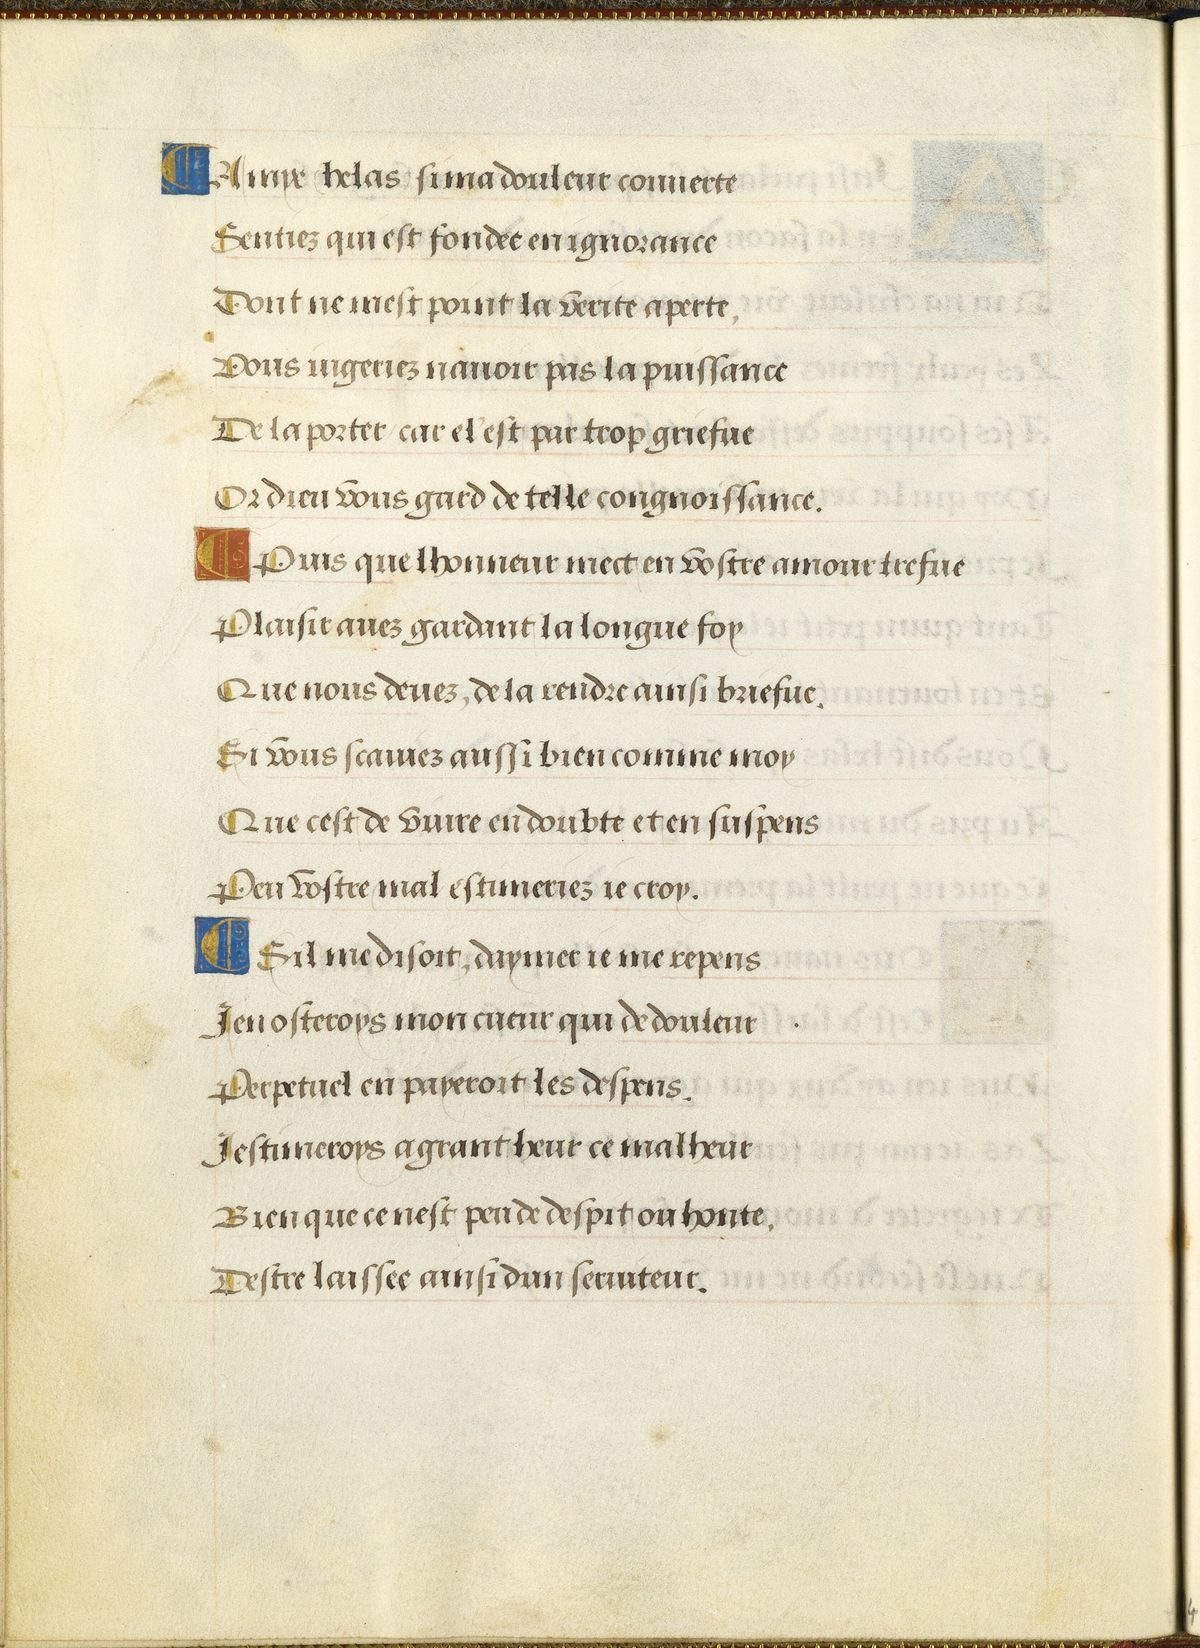 Amye helas si ma douleur couuerte
Sentiez qui est fondee en ignorance
Dont ne mest point la verite aperte,
Vous iugeriez nauoir pas la puissance
De la porter car el'est par trop griefue
Or dieu vous gard de telle congnoissance.
Puis que lhonneur mect en vostre amour trefue
Plaisir auez gardant la longue foy
Que nous deuez, de la rendre ainsi briefue,
Si vous scauiez aussi bien comme moy
Que cest de viure en doubte et en suspens
Peu vostre mal estimeriez ie croy.
Sil me disoit, daymer ie me repens
Jen osteroys mon cueur qui de douleur
Perpetuel en payeroit les despens.
Jestimeroys a grant heur ce malheur
Bien que ce nest peu de despit ou honte,
Destre laissee ainsi dun seruiteur.